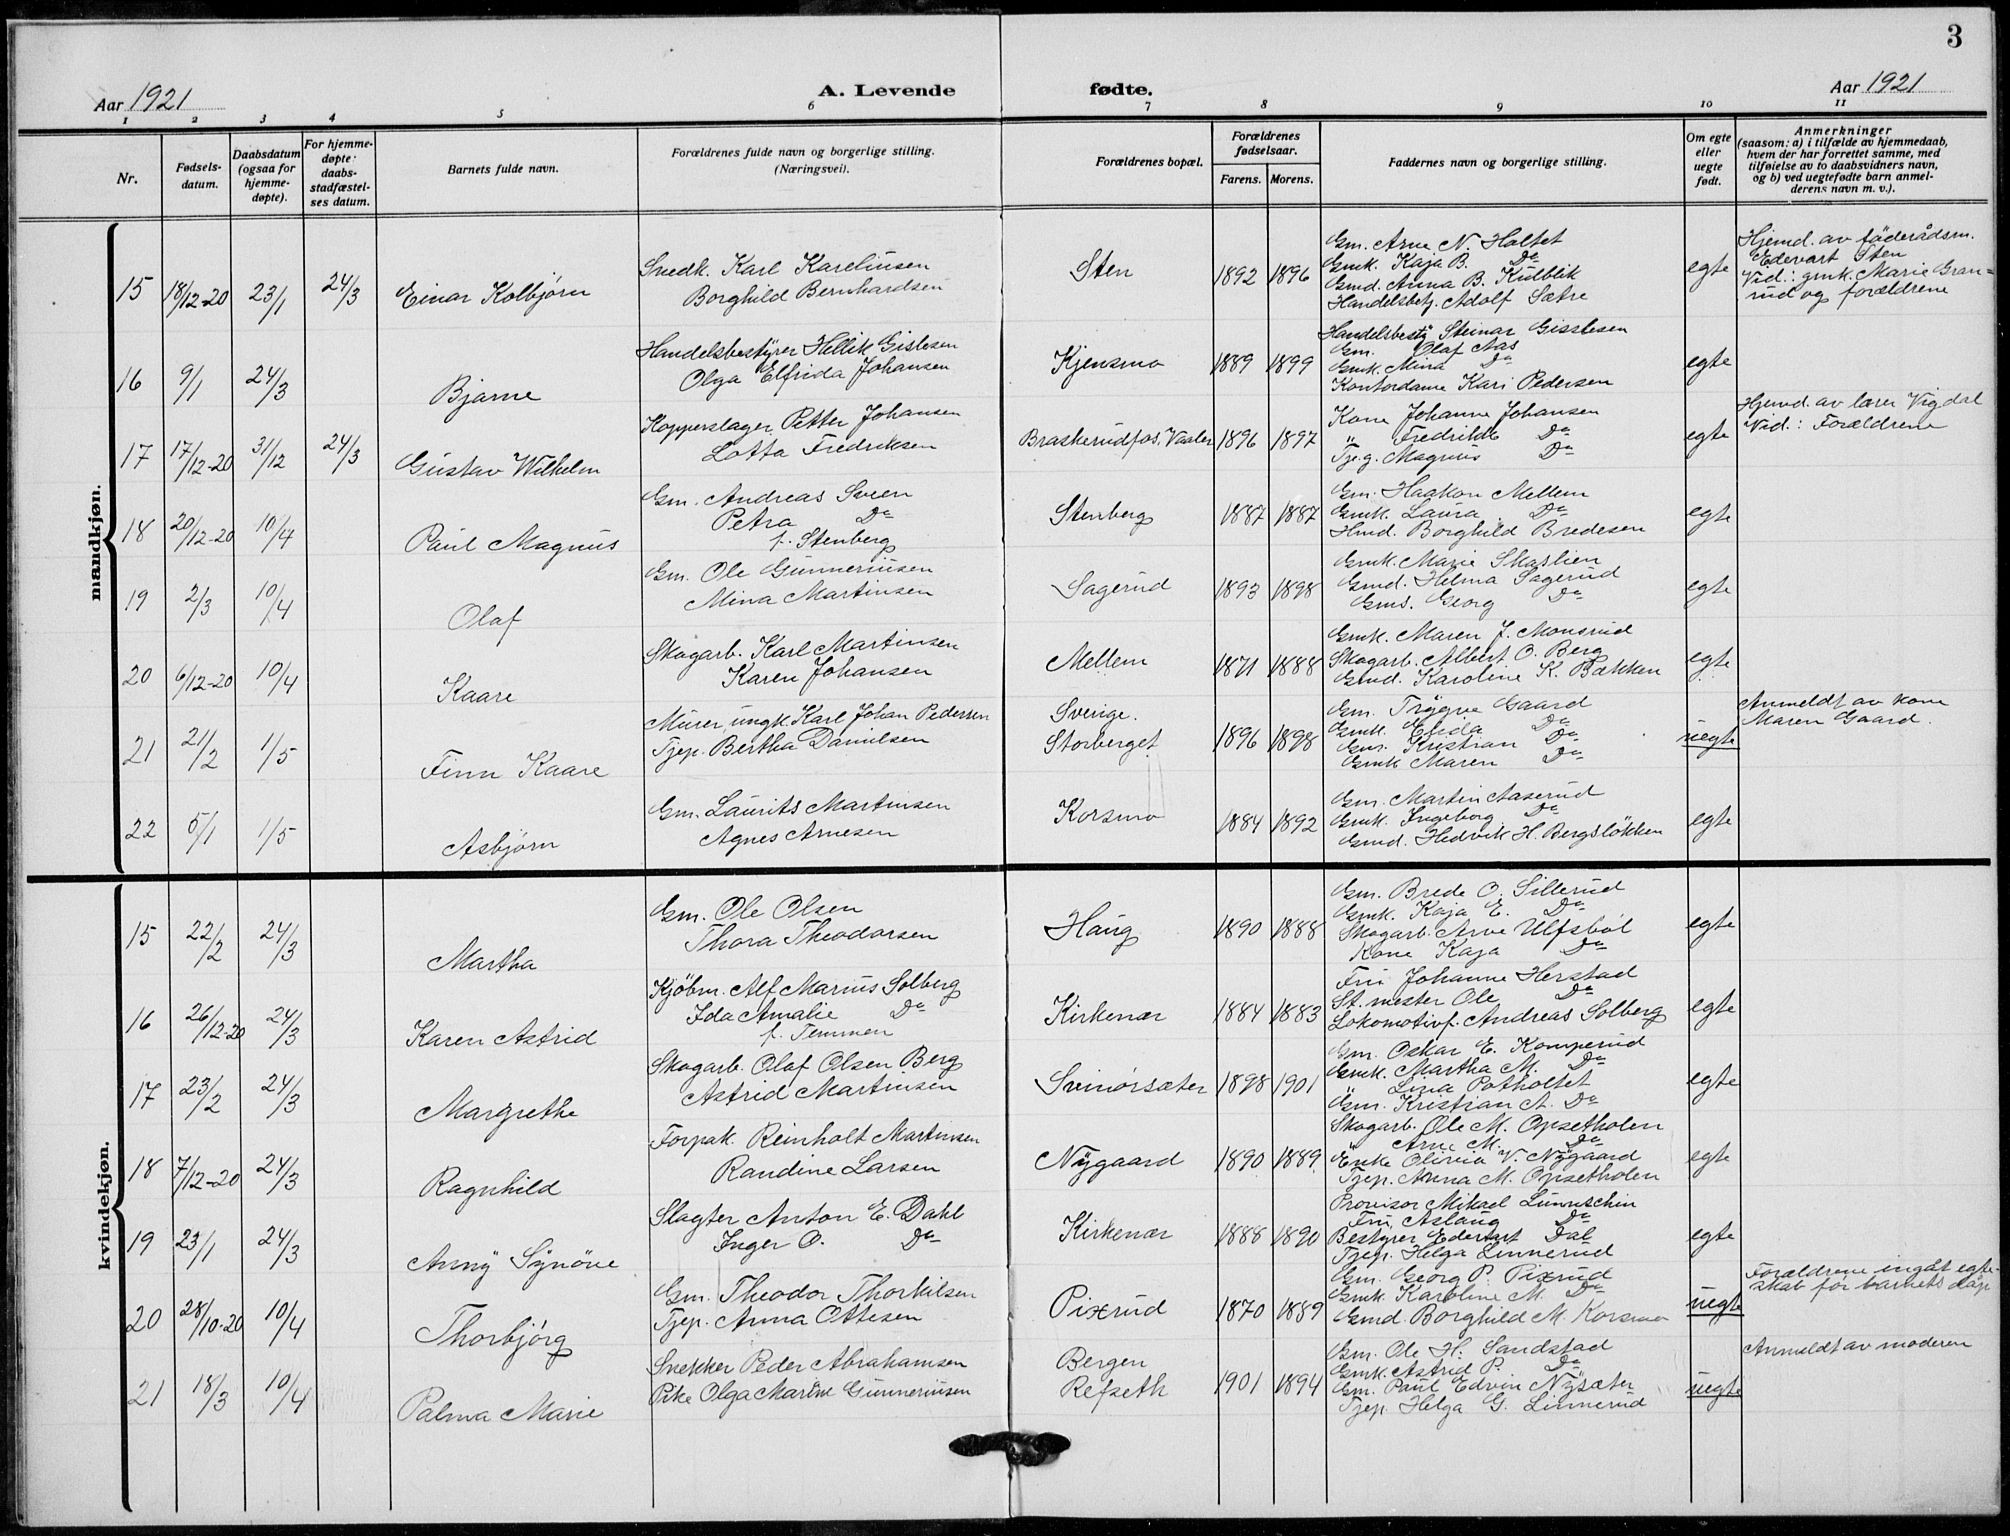 3
Aar 1921
A. Levende fødte.
Aar 1921
1 2 3 4 5 6 7 8 9 10 11
Nr.
Fødsels-
datum.
Daabsdatum
(ogsaa for
hjemme-
døpte).
For hjemme-
døpte:
daabs-
stadfæstel-
ses datum.
Barnets fulde navn.
Forældrenes fulde navn og borgerlige stilling.
(Næringsvei).
Forældrenes bopæl.
Forældrenes
fødselsaar.
Farens. Morens.
Faddernes navn og borgerlige stilling.
Om egte
eller
uegte
født.
Anmerkninger
(saasom: a) i tilfælde av hjemmedaab,
hvem der har forrettet samme, med
tilføielse av to daabsvidners navn,
og b) ved uegtefødte barn anmel-
derens navn m. v.).
mandkjøn.
15 18/12-20 23/1 24/3 Einar Kolbjørn
Snedk. Karl Kareliusen
Borghild Bernhardsen
Sten 1892 1896
Gm. Arne N. Haltet
Gmk. Kaja B. Do
Gmd. Anna B. Kulblik
Handelsbetj. Adolf Sætre
egte
Hjemd. av føderådsm.
Edevart Sten
Vid.: gmk. Marie Gran-
rud og forældrene
16 9/1 24/3 Bjarne
Handelsbestyrer Hellik Gislesen
Olga Elfrida Johansen
Kjensmo 1889 1899
Handelsbesty Steinar Gisslesen
Gm. Olaf Aas
Gmk. Mina Do
Kontordame Kari Pedersen
egte
17 17/12-20 31/12 24/3 Gustav Wilhelm
Kopperslager Petter Johansen
Lotta Fredriksen
Braskerudfos, Vaaler 1896 1897
Kone Johanne Johansen
" Fredrikke Do
Tjeg. Magnus Do
egte
Hjemd. av lærer Vigdal
Vid.: Forældrene
18 20/12-20 10/4 Paul Magnus
Gm. Andreas Sveen
Petra Do
f. Stenberg
Stenberg 1887 1887
Gm. Haakon Mellem
Gmk. Laura Do
Hmd. Borghild Bredesen
egte
19 2/3 10/4 Olaf
Gm. Ole Gunneriusen
Mina Martinsen
Sagerud 1893 1898
Gmk. Marie Skaslien
Gmd. Helma Sagerud
Gms. Georg Do
egte
20 6/12-20 10/4 Kaare
Skogarb. Karl Martinsen
Karen Johansen
Mellem 1871 1888
Gmk. Maren J. Monsrud
Skogarb. Albert O. Berg
Gmd. Karoline K. Bakken
egte
21 21/2 1/5 Finn Kaare
Murer, ungk. Karl Johan Pedersen
Tjep. Bertha Danielsen
Sverige.
Storberget 1896 1898
Gm. Trygve Gaard
Gmk. Elida Do
Gm. Kristian Do
Gmk Maren Do
uegte
Anmeldt av kone
Maren Gaard.
22 5/1 1/5 Asbjørn
Gm. Laurits Martinsen
Agnes Arnesen
Korsmo 1884 1892
Gm. Martin Aaserud
Gmk. Ingeborg Do
Gmd. Hedvik H. Bergsløkken
egte
kvindekjøn.
15 22/2 24/3 Martha
Gm. Ole Olsen
Thora Theodorsen
Haug 1890 1888
Gm. Brede O. Sillerud
Gmk. Kaja E. Do
Skogarb. Arve Ulfsbøl
Kone Kaja Do
egte
16 26/12-20 24/3 Karen Astrid
Kjøbm. Alf Marius Solberg
Ida Amalie Do
f. Temmen
Kirkenær 1884 1883
Fru Johanne Herstad
St. mester Ole Do
Lokomotivf. Andreas Solberg
egte
17 23/2 24/3 Margrethe
Skogarb. Olaf Olsen Berg
Astrid Martinsen
Svenørsæter 1898 1901
Gm. Oskar E. Komperud
Gmk. Martha M. Do
" Lina Potholtet
Gm. Kristian A. Do
egte
18 7/12-20 24/3 Ragnhild
Forpak. Reinholt Martinsen
Randine Larsen
Nygaard 1890 1889
Skogarb. Ole M. Opsetholen
" Arne M. Do
Enke Olivia V. Nygaard
Tjep. Anna M. Opsetholen
egte
19 23/1 24/3 Anny Synøve
Slagter Anton E. Dahl
Inger O. Do
Kirkenær 1888 1890
Provisor Mikael Linneschin
Fru Aslaug Do
Bestyrer Edevart Dal
Tjep. Helga Linnerud
egte
20 28/10-20 10/4 Thorbjørg
Gm. Theodor Thorkilsen
Tjep. Anna Ottesen
Pixrud 1870 1889
Gm. Georg P. Pixrud
Gmk. Karoline M. Do
Gmd. Borghild M. Korsmo
uegte
Forældrene ingåt egte-
skab før barnets dåp
21 18/3 10/4 Palma Marie
Snekker Peder Abrahamsen
Pike Olga Marine Gunneriusen
Bergen
Refseth 1901 1894
Gm. Ole H. Sandstad
Gmk. Astrid P. Do
Gm. Paul Edvin Nysæter
Tjep. Helga G. Linnerud
uegte
Anmeldt av moderen